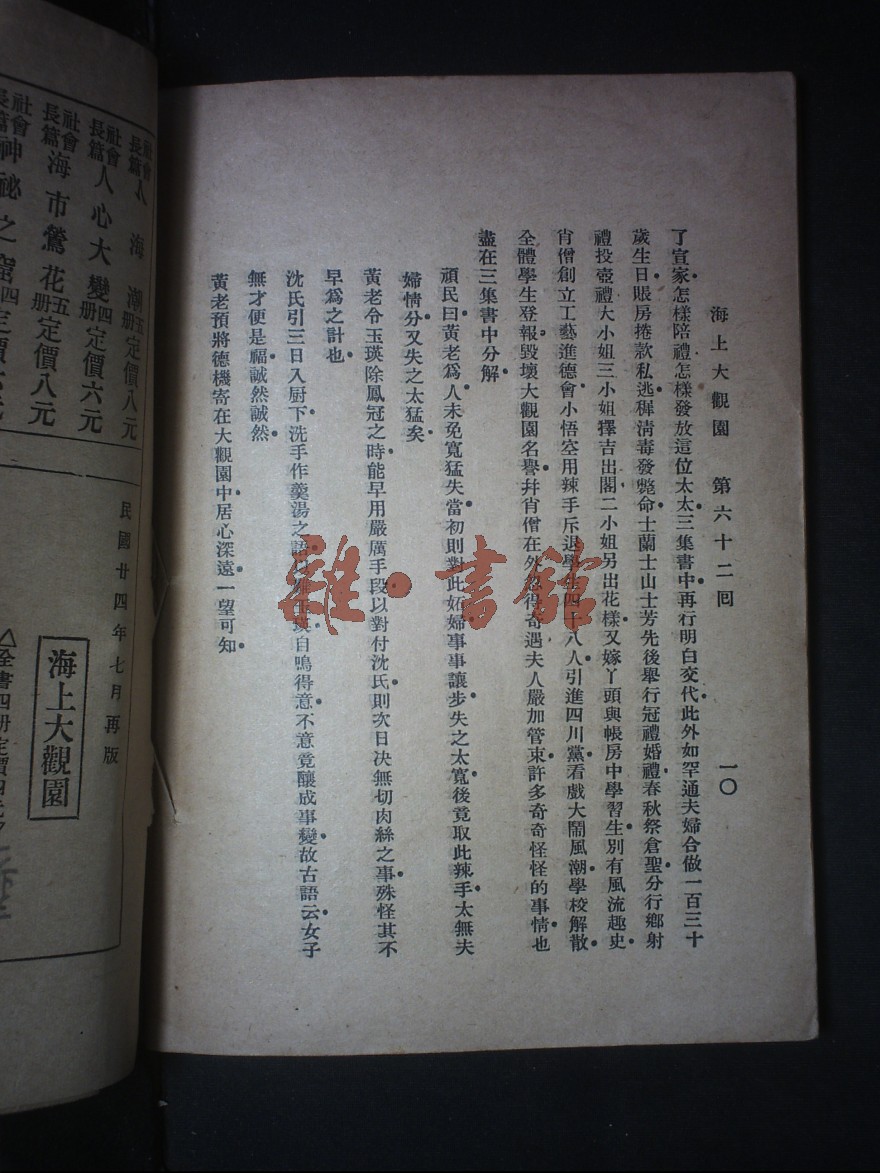 海上大觀園　第六十二囘　一〇
了宣家怎樣陪禮怎樣發放這位太太三集書中再行明白交代此外如罕通夫婦合做一百三十
歲生日賬房捲款私逃穉淸毒發斃命士蘭士山士芳先後舉行冠禮婚禮春秋祭倉聖分行鄉射
禮投壺禮大小姐三小姐擇吉出閣二小姐另出花樣又嫁丫頭與帳房中學習生別有風流趣史
肖僧創立工藝進德會小悟空用辣手斥退學生四十八人引進四川黨看戲大鬧風潮學校解散
全體學生登報毀壞大觀園名譽幷肖僧在外忽得奇遇夫人嚴加管束許多奇奇怪怪的事情也
盡在三集書中分解
頑民曰黃老爲人未免寬猛失當初則對此妬婦事事讓步失之太寬後竟取此辣手太無夫
婦情分又失之太猛矣
黃老令玉瑛除鳳冠之時能早用嚴厲手段以對付沈氏則次日决無切肉絲之事殊怪其不
早爲之計也
沈氏引三日入厨下洗手作羹湯之語玉瑛自鳴得意不意竟釀成事變故古語云女子
無才便是福誠然誠然
黃老預將德機寄在大觀園中居心深遠一望可知
雜·書館
社會長篇人海潮五册定價八元
社會長篇人心大變四册定價六元
社會長篇海市鶯花五册定價八元
社會長篇神祕之窟四
民國廿四年七月再版
海上大觀園
△全書四册定價四元